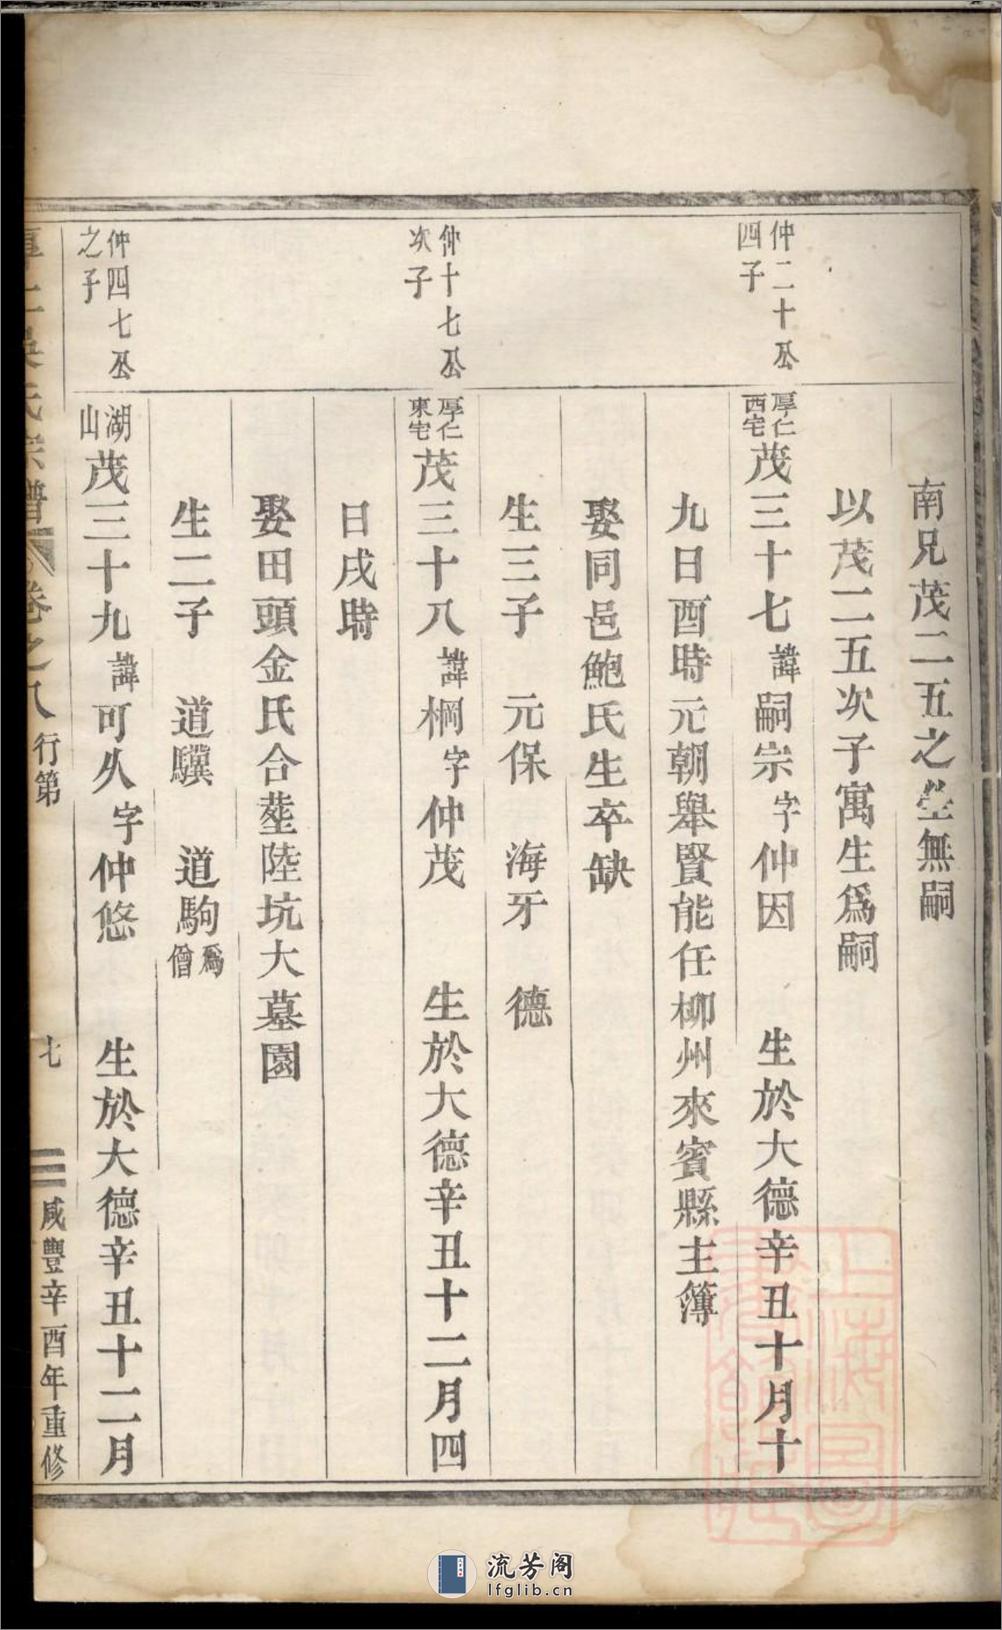 南兄茂二五之塋無嗣
以茂二五次子寓生爲嗣
仲二十公
四子
厚仁
西宅
茂三十七諱嗣宗字仲因　生於大德辛丑十月十
九日酉時元朝舉賢能任柳州來賓縣主簿
娶同邑鮑氏生卒缺
生三子　元保　海牙　德
仲十七公
次子
厚仁
東宅
茂三十八諱棡字仲茂　生於大德辛丑十二月四
日戌時
娶田頭金氏合塟陸坑大墓園
生二子　道驥　道駒爲僧
仲四七公
之子
湖山
茂三十九諱可久字仲悠　生於大德辛丑十二月
厚仁吳氏宗譜　卷之八　行第　七　咸豐辛酉年重修
上海圖書館藏
流芳阁
lfglib.cn